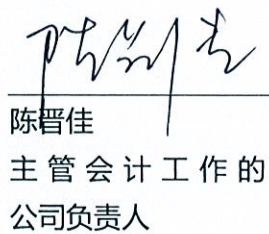 陈晋佳
主管会计工作的
公司负责人